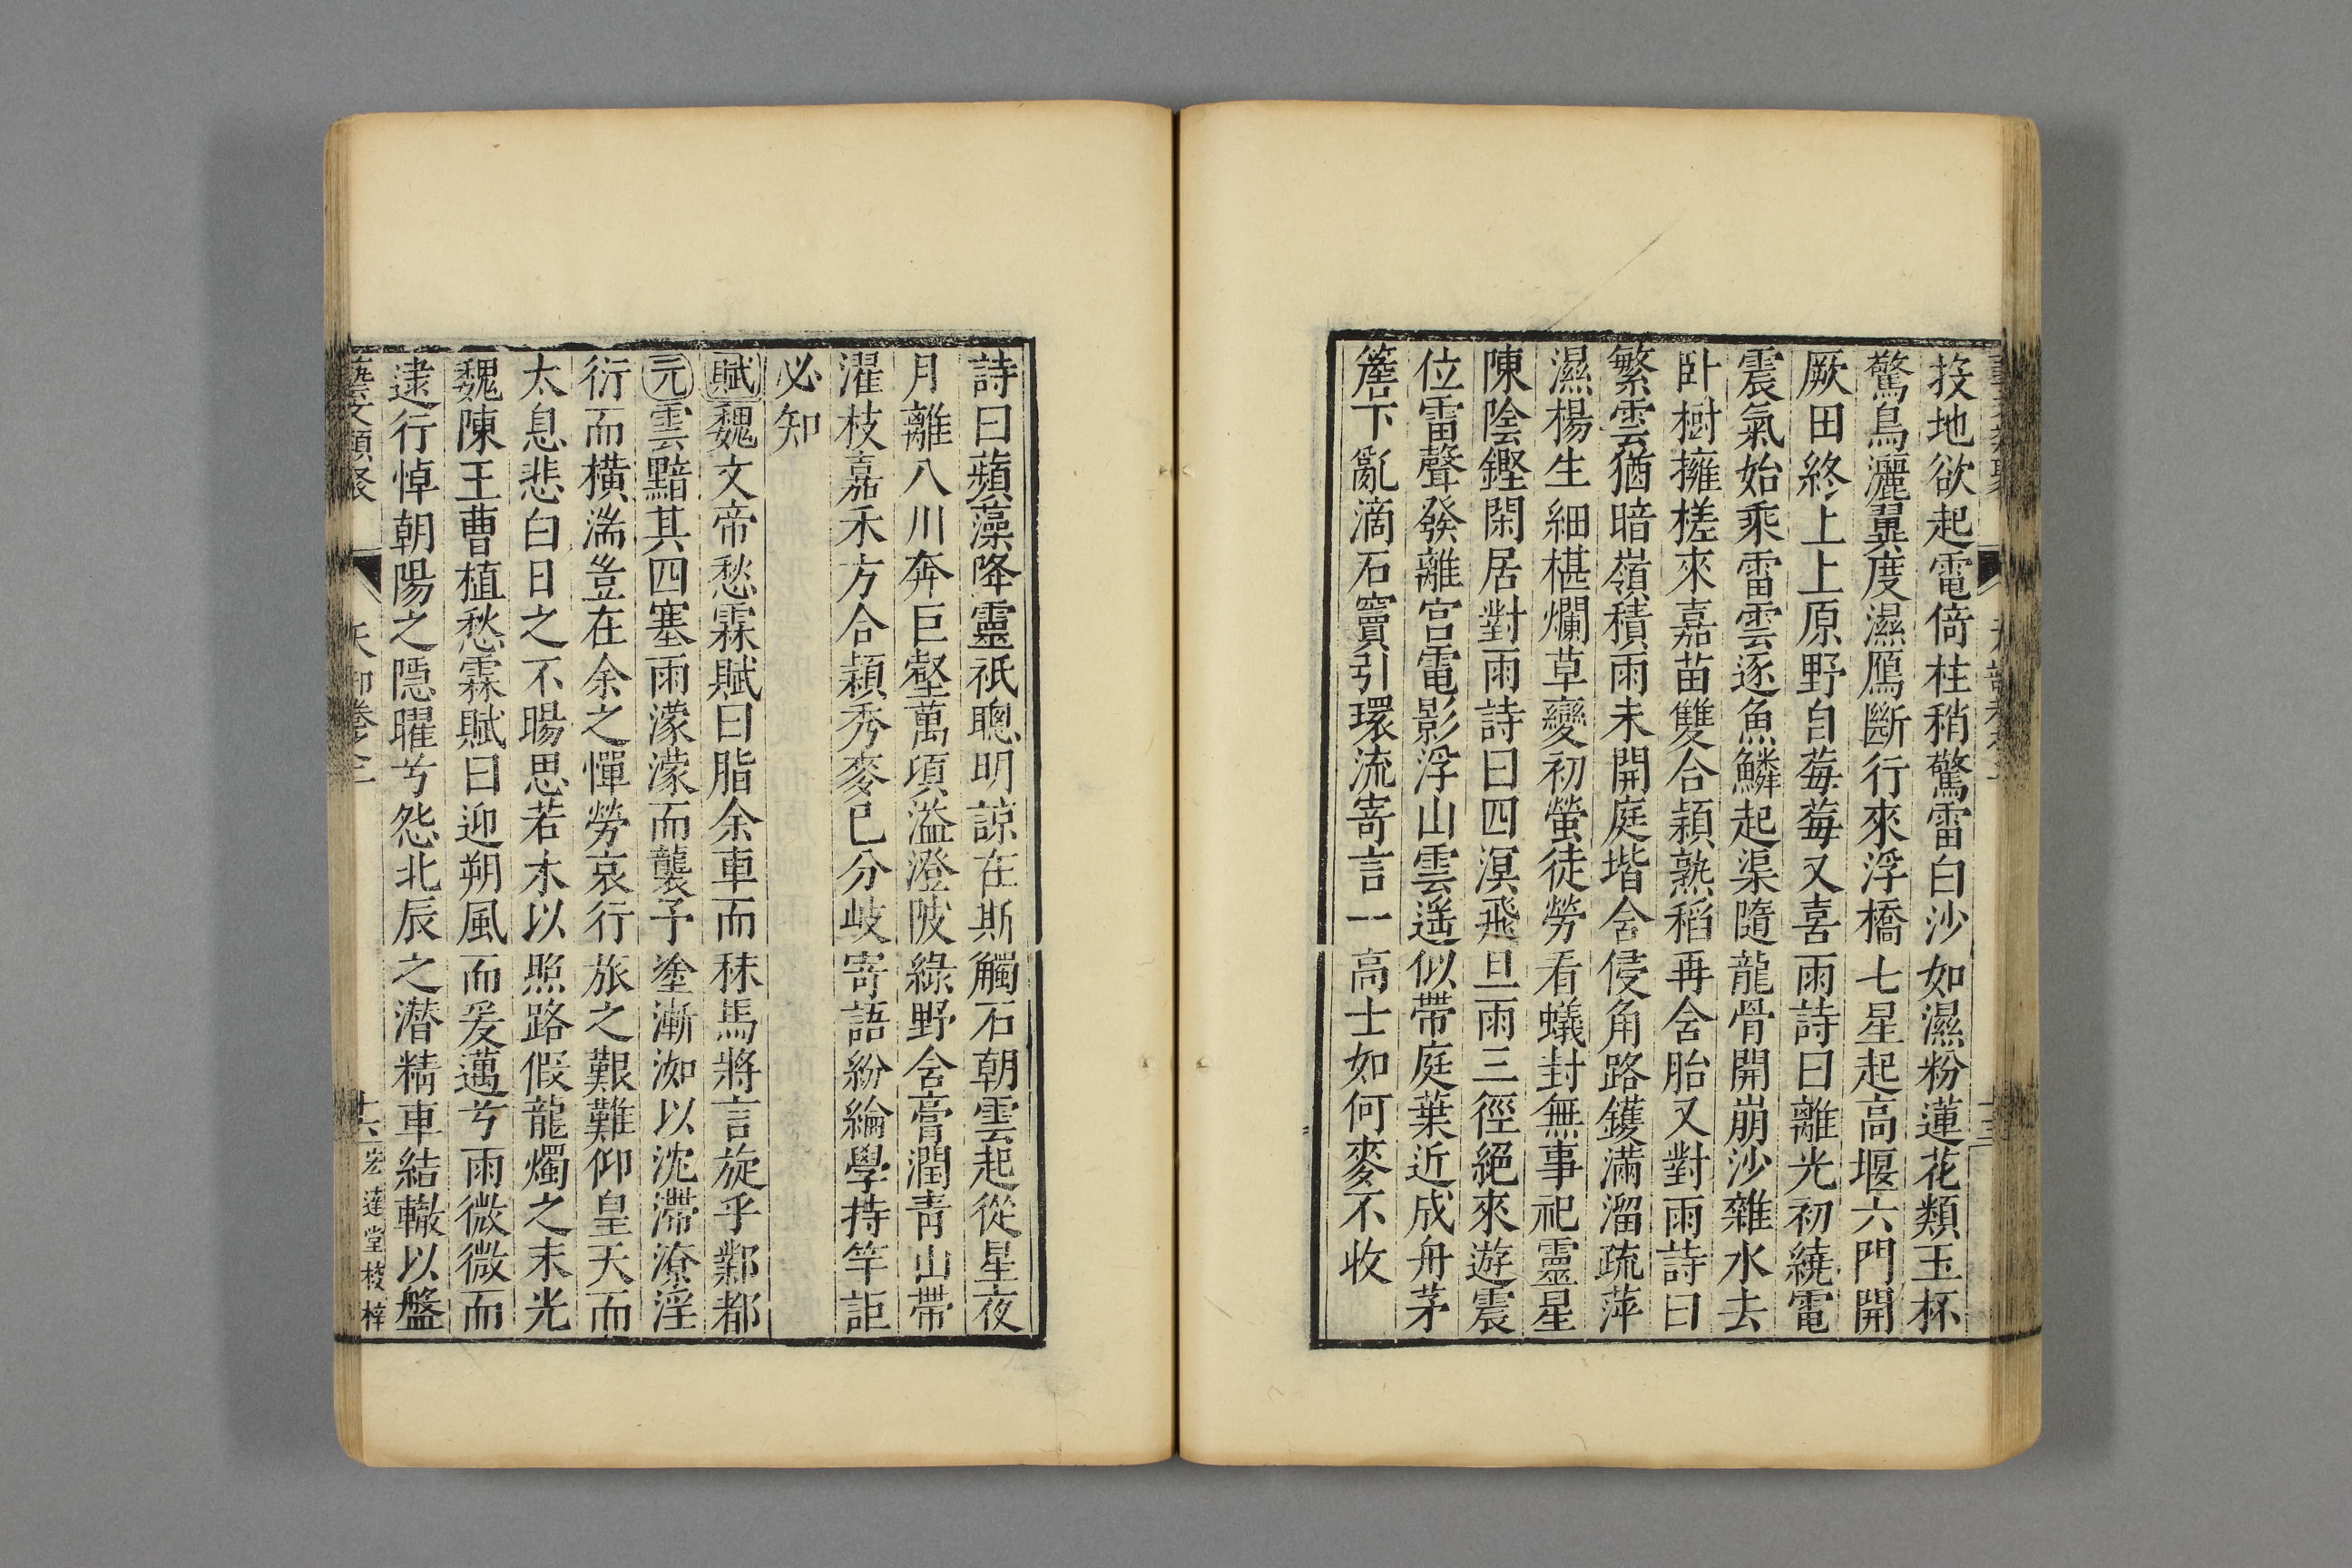 投地欲起電倚柱稍驚雷白沙如濕粉蓮花類玉杯
驚鳥灑翼度濕鴈斷行來浮橋七星起高堰六門開
厥田終上上原野自莓莓又喜雨詩曰離光初繞電
震氣始乘雷雲逐魚鱗起渠隨龍骨開崩沙雜水去
卧樹擁槎來嘉苗雙合穎熟稻再含胎又對雨詩曰
繁雲猶暗嶺積雨未開庭堦含侵角路鑊滿溜疏萍
濕楊生細椹爛草變初螢徒勞看蟻封無事祀靈星
陳陰鏗閑居對雨詩曰四溟飛旦雨三徑絕來遊震
位雷聲發離宮電影浮山雲遥似帶庭葉近成舟茅
簷下亂滴石竇引環流寄言一高士如何麥不收
詩曰蘋藻降靈祇聰明諒在斯觸石朝雲起從星夜
月離八川奔巨壑萬頃溢澄陂綠野含膏潤青山帶
濯枝嘉禾方合穎秀麥已分岐寄語紛綸學持竿詎
必知
賦魏文帝愁霖賦曰脂余車而秣馬將言旋乎鄴都
元雲黯其四塞雨濛濛而襲予塗漸洳以沈滯潦淫
衍而橫湍豈在余之憚勞哀行旅之艱難仰皇天而
太息悲白日之不暘思若木以照路假龍燭之末光
魏陳王曹植愁霖賦曰迎朔風而爰邁兮雨微微而
逮行悼朝陽之隱曜兮怨北辰之潛精車結轍以盤
藝文類聚 天部卷二 十六 宏達堂校梓